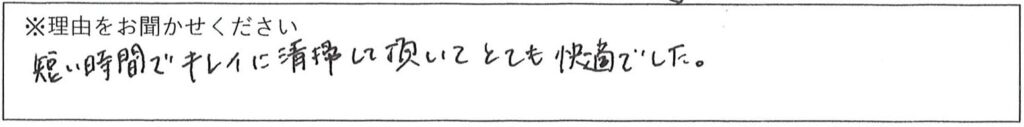 ※理由をお聞かせください
短い時間でキレイに清掃して頂いてとても快適でした。